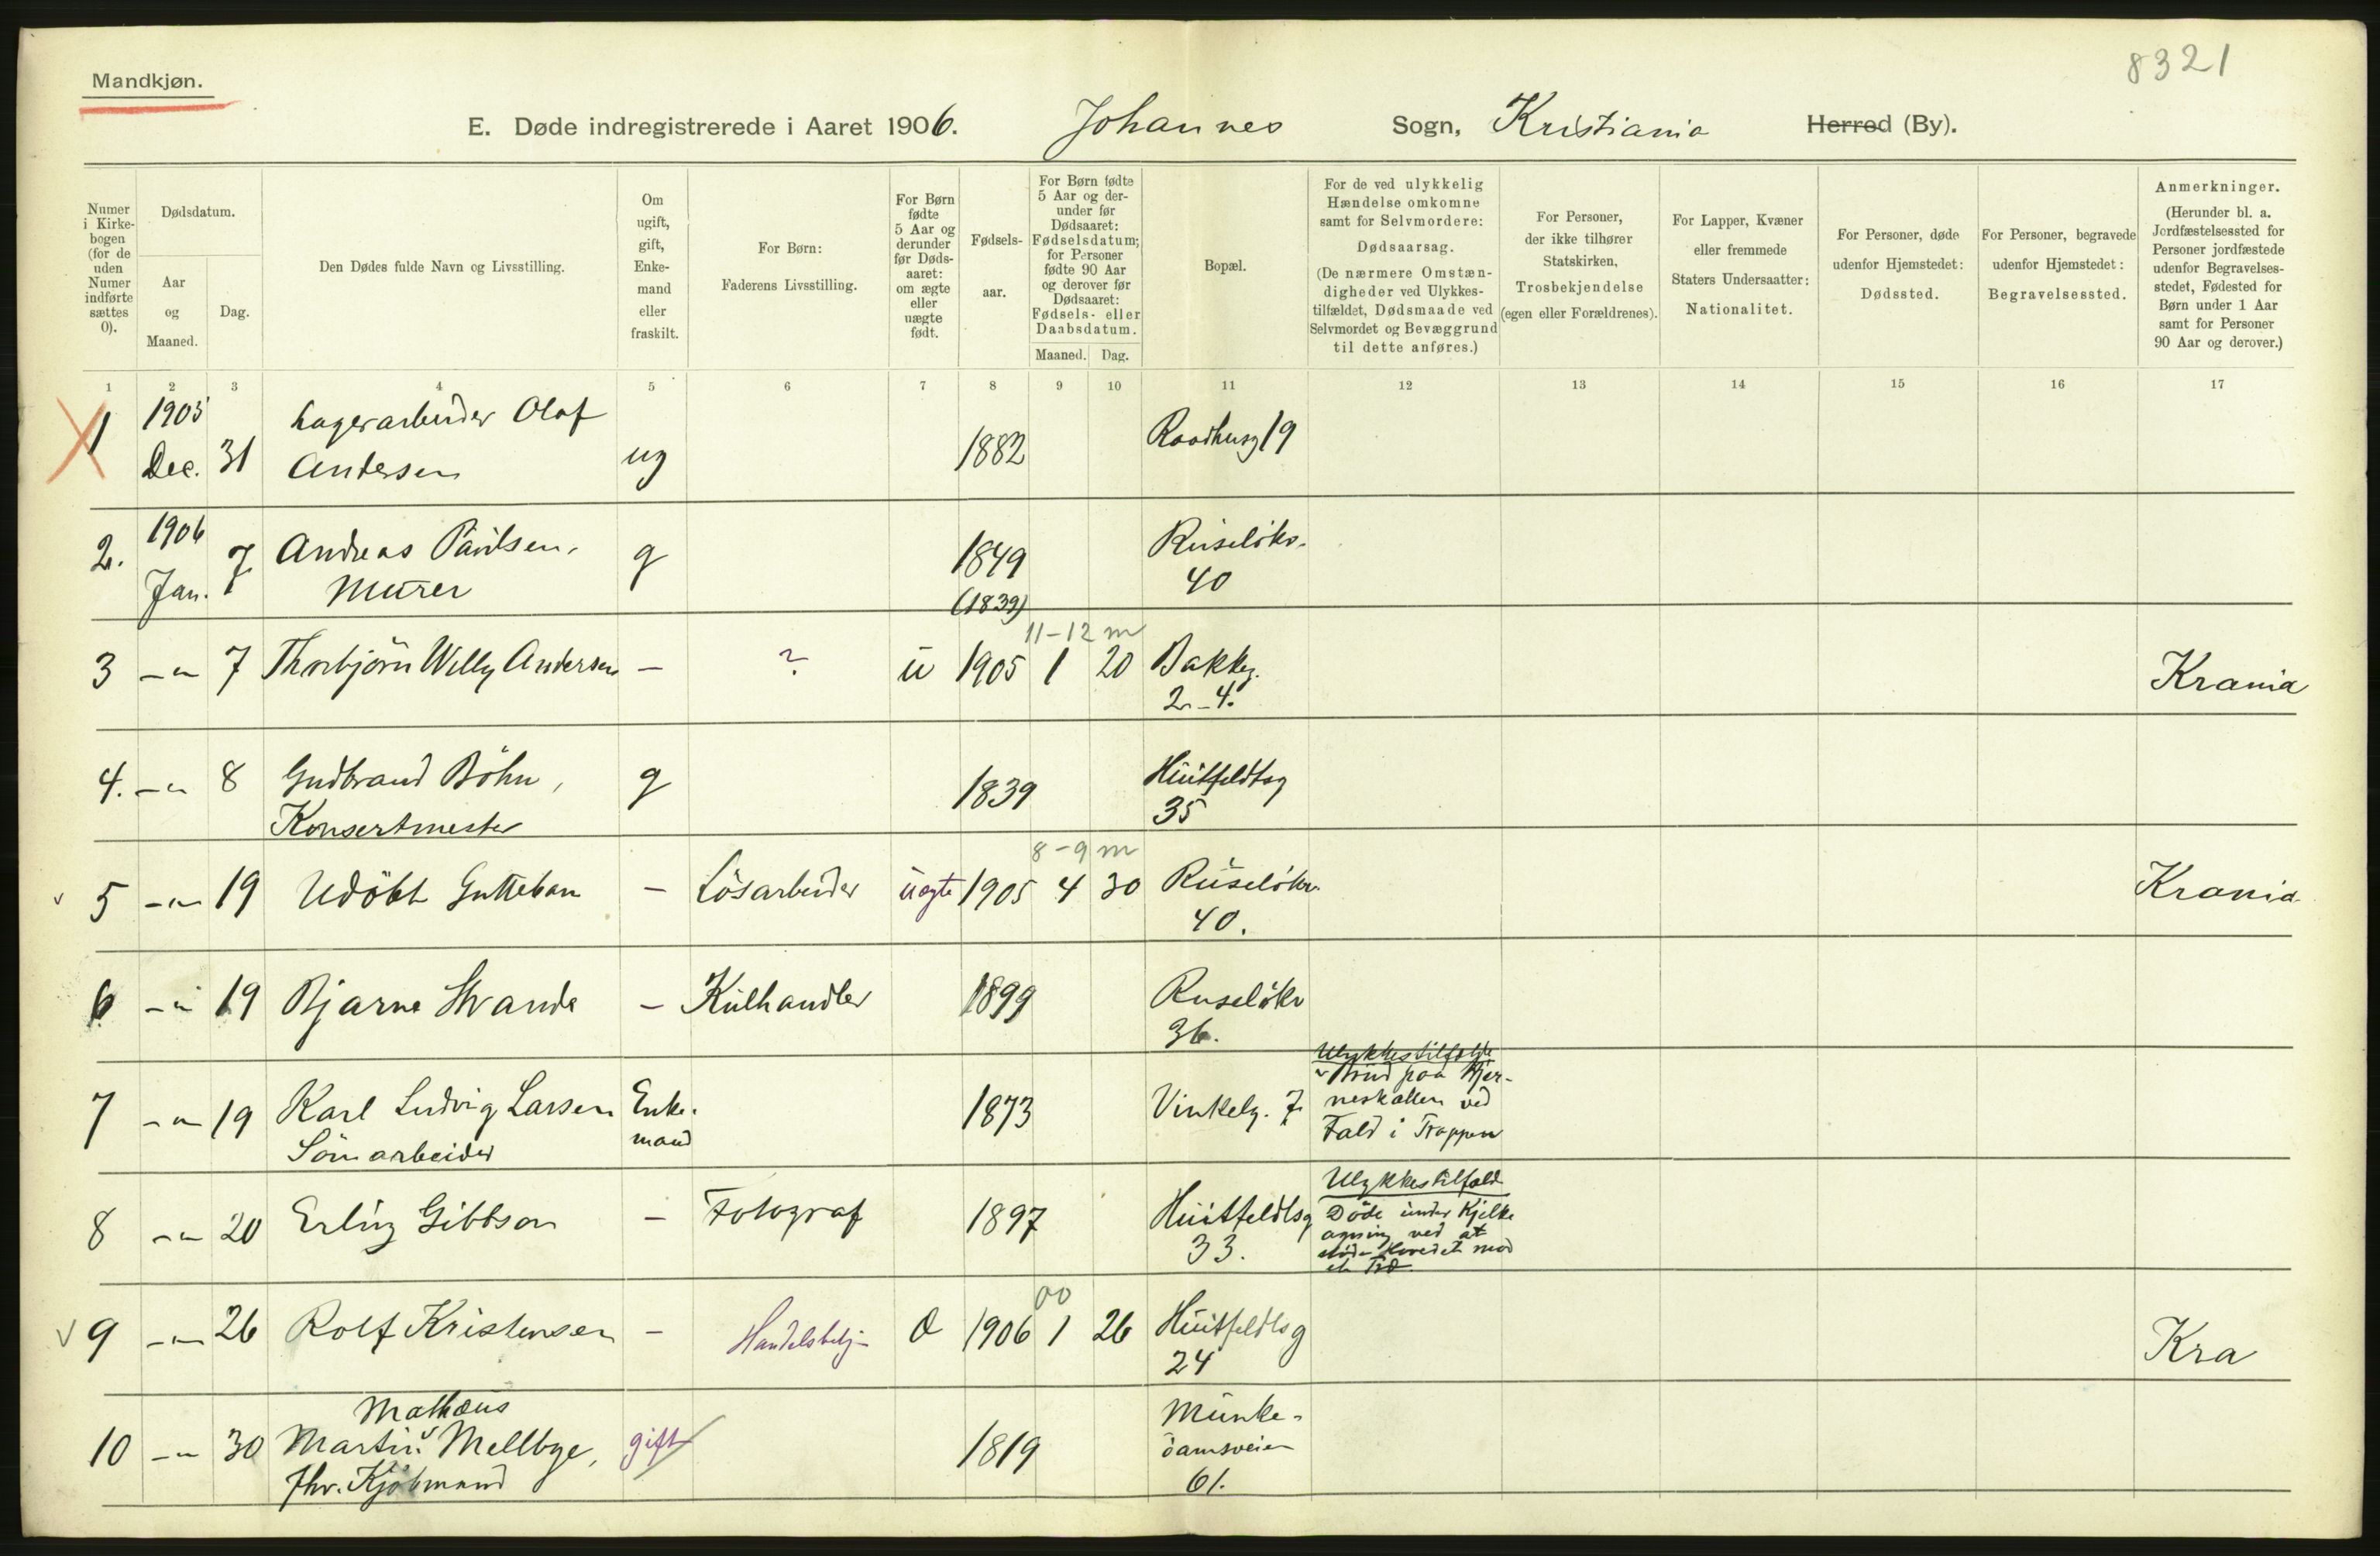 8321
Mandkjøn.
E. Døde indregistrerede i Aaret 1906. Johannes Sogn, Kristiania Herred (By).
Numer i Kirkebogen (for de uden Numer indførte sættes 0).
Dødsdatum.
Aar og Maaned.
Dag.
Den Dødes fulde Navn og Livsstilling.
Om ugift, gift, Enkemand eller fraskilt.
For Børn: Faderens Livsstilling.
For Børn fødte 5 Aar og derunder før Dødsaaret: om ægte eller uægte født.
Fødselsaar.
For Børn fødte 5 Aar og derunder før Dødsaaret: Fødselsdatum; for Personer fødte 90 Aar og derover før Dødsaaret: Fødsels- eller Daabsdatum.
Maaned. Dag.
Bopæl.
For de ved ulykkelig Hændelse omkomne samt for Selvmordere: Dødsaarsag. (De nærmere Omstændigheder ved Ulykkestilfældet, Dødsmaade ved Selvmordet og Bevæggrund til dette anføres.)
For Personer, der ikke tilhører Statskirken, Trosbekjendelse (egen eller Forældrenes).
For Lapper, Kvæner eller fremmede Staters Undersaatter: Nationalitet.
For Personer, døde udenfor Hjemstedet: Dødssted.
For Personer, begravede udenfor Hjemstedet: Begravelsessted.
Anmerkninger. (Herunder bl. a. Jordfæstelsessted for Personer jordfæstede udenfor Begravelsesstedet, Fødested for Børn under 1 Aar samt for Personer 90 Aar og derover.)
1 2 3 4 5 6 7 8 9 10 11 12 13 14 15 16 17
1 1905 Dec. 31 Lagerarbeider Olaf
Andersen ug 1882 Raadhusg 19
2. 1906 Jan. 7 Andreas Paulsen, g 1849 Ruseløkv.
Murer (1839) 40
11-12 m
3 -"- 7 Thorbjörn Willy Andersen - ? u 1905 1 20 Bakkeg. Krania
2-4.
4. -"- 8 Gudbrand Böhn, g 1839 Huitfeldtsg
Konsertmester 35
8-9 m
5 -"- 19 Udöbt Guttebarn - Lösarbeider uægte 1905 4 30 Ruselökv. Krania
40.
6 -"- 19 Bjarne Strande - Kulhandler 1899 Ruselökv
36.
Ulykkestilfælde
7 -"- 19 Karl Ludvig Larsen Enke- 1873 Vinkelg. 7 Brud paa Hjer-
Sömarbeider mand neskallen ved
Fald i Trappen
Ulykkestilfæld
8 -"- 20 Erling Gibbson - Fotograf 1897 Huitfeldtsg Döde under Kjelke
33. agning ved at
støde Hovedet mod
et Træ.
00
9 -"- 26 Rolf Kristensen - Handelsbetj- Æ 1906 1 26 Huitfeldtsg Kra
24
Mathæus
10 -"- 30 Martin Mellbye, gift 1819 Munke-
fhv. Kjöbmand damsveien
61.